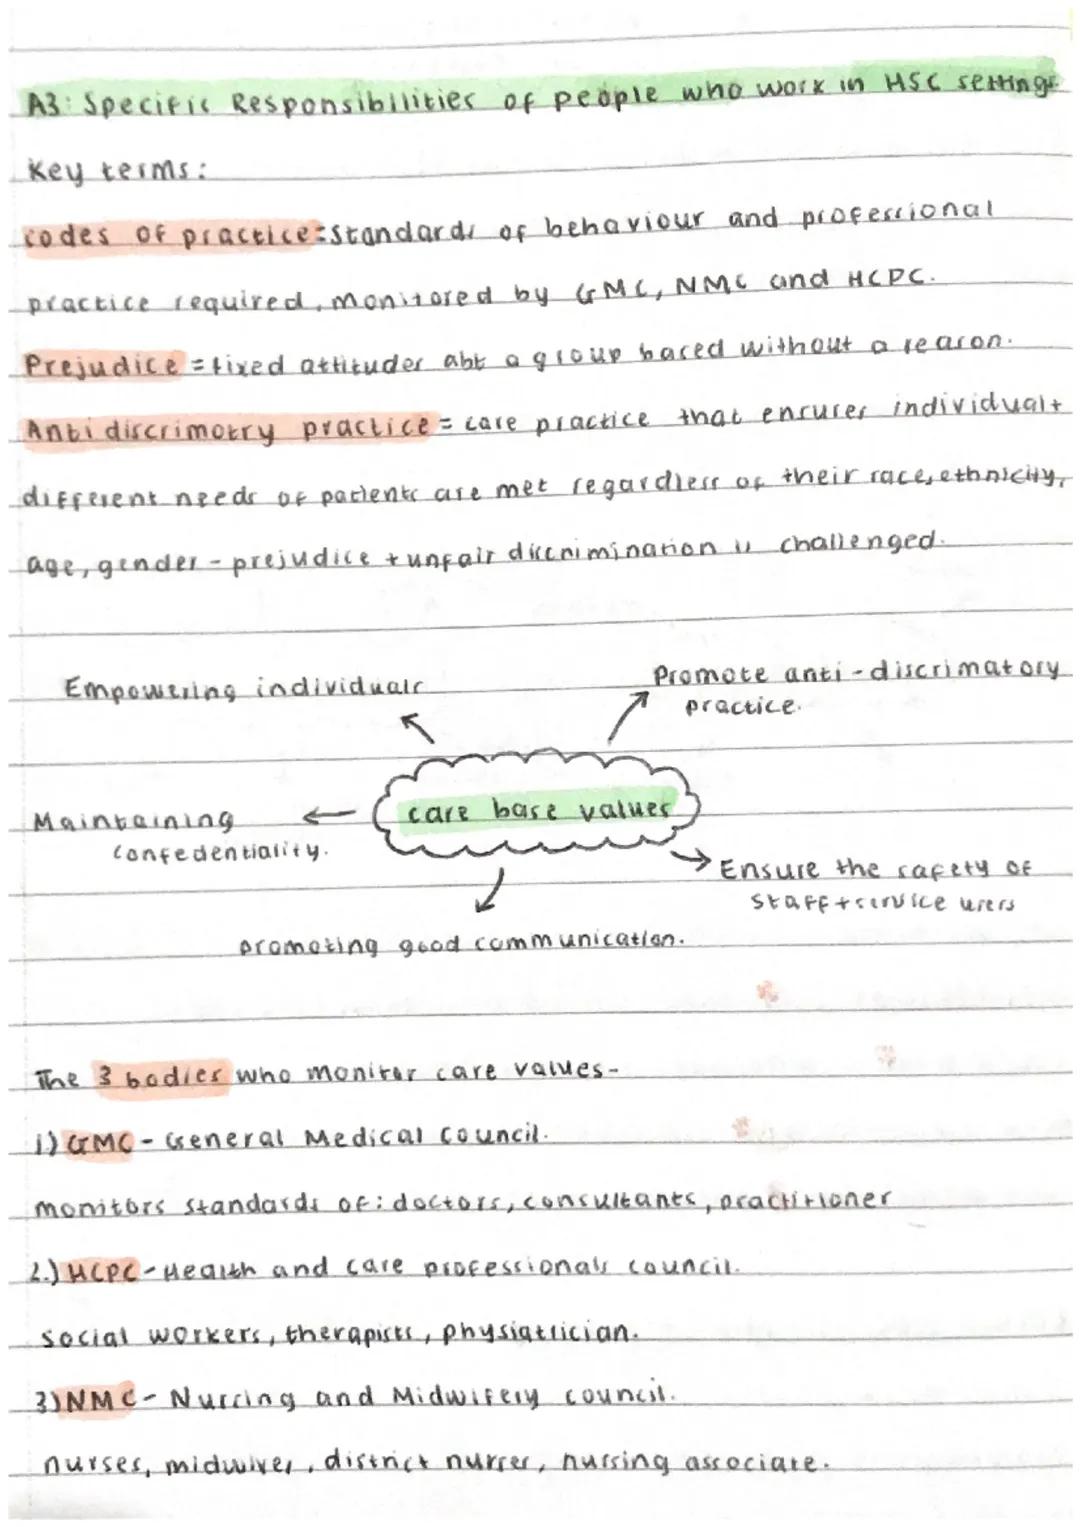 A3: Specific Responsibilities of people who work in HSC settings
Key terms:
codes of practice = standards of behaviour and professional
practice required, monitored by GMC, NMC and HCPC.
Prejudice = fixed attitudes abt a group based without a reason.
Anti discrimotry practice = care practice that ensures individual +
different needs of patients are met regardless of their race, ethnicity,
age, gender - prejudice + unfair discrimination is challenged.
Empowering individuals
Promote anti-discrimatory
practice.
care base values
Maintaining
confedentiality.
Ensure the safety of
staff + service users
promoting good communication.
The 3 bodies who monitor care values-
1) GMC - General Medical Council.
monitors standards of: doctors, consultants, practitioner
2.) HCPC - Health and care professionals council.
social workers, therapists, physiatrician.
3) NMC - Nursing and Midwifery council.
nurses, midwives, district nurses, nursing associate.